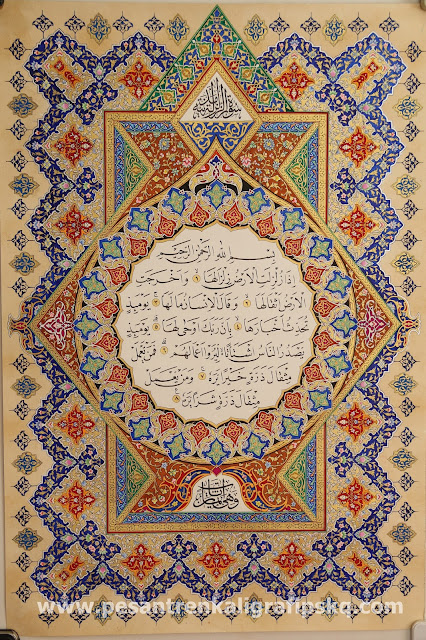 سورة
بسم الله الرحمن الرحيم
إذا زلزلت الأرض زلزالها ١ وأخرجت
الأرض أثقالها ٢ وقال الإنسان مالها ٣ يومئذ
تحدث أخبارها ٤ بأن ربك أوحى لها ٥ يومئذ
يصدر الناس أشتاتا ليروا أعمالهم ٦ فمن يعمل
مثقال ذرة خيرا يره ٧ ومن يعمل
مثقال ذرة شرا يره ٨
وهي ثمان آيات
www.pesantrenkaligrafipskq.com